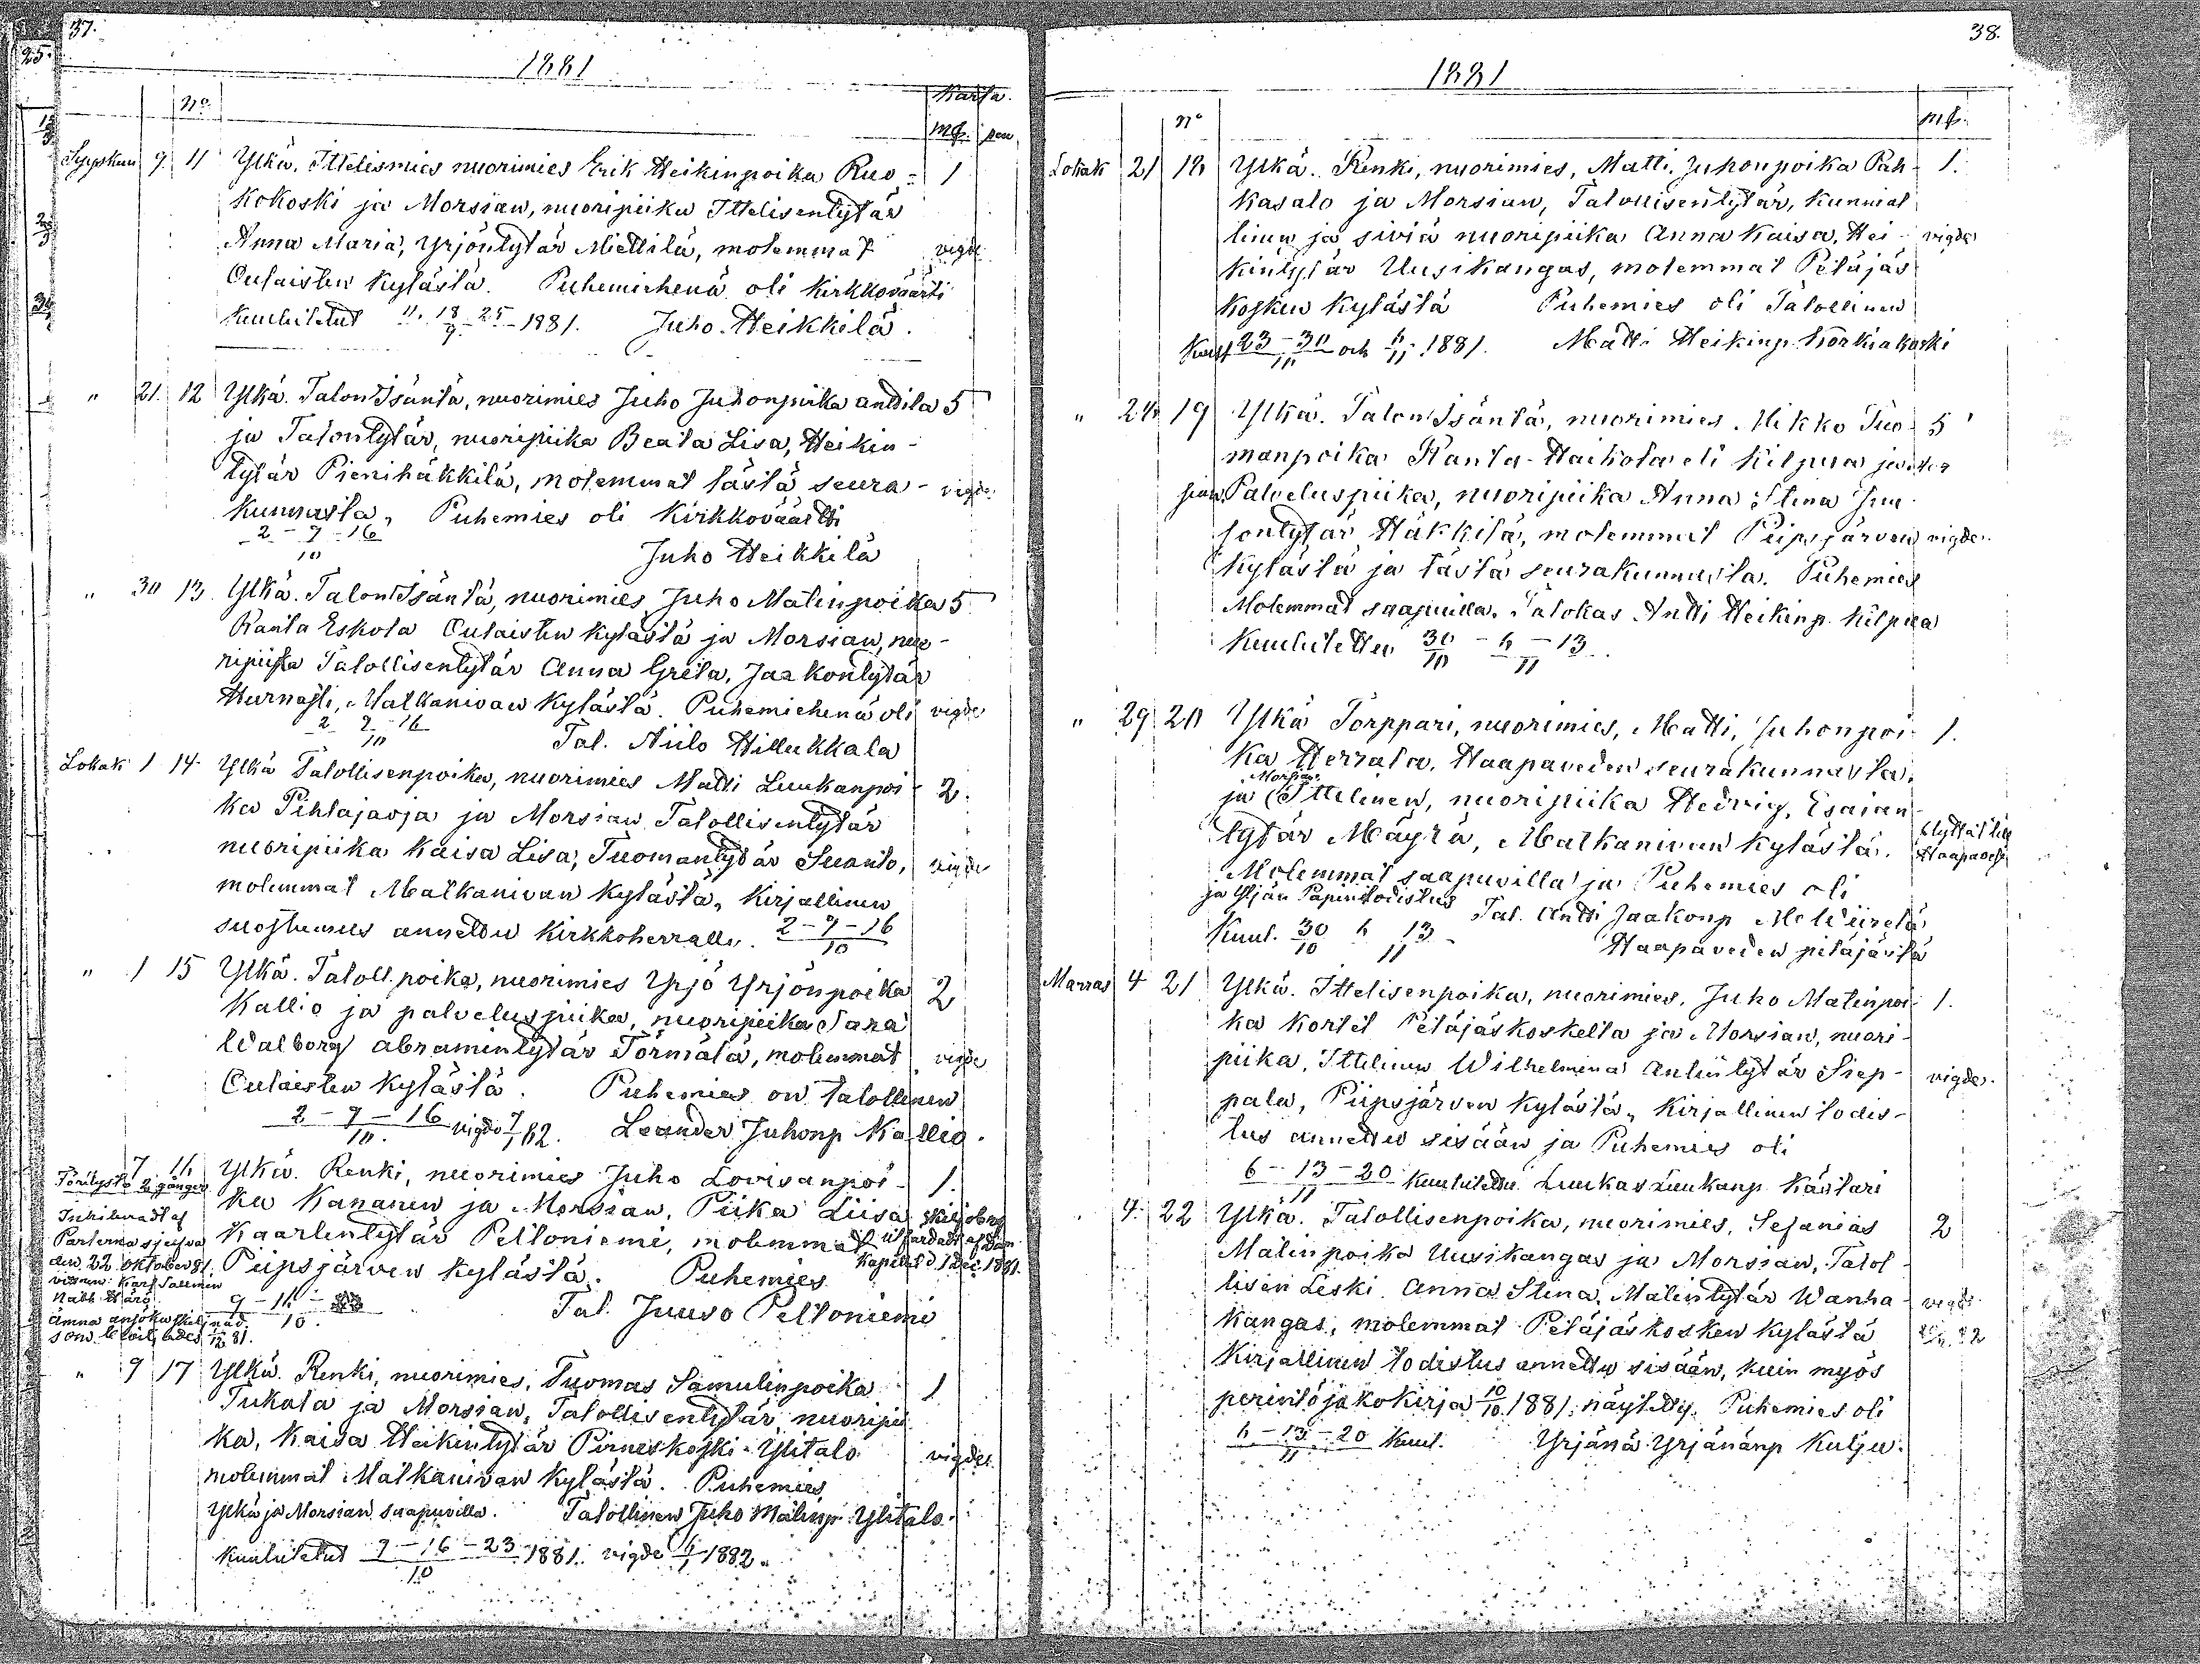 37.
25.
1881
No.
Karta.
mk. pen
Syyskuu 9. 11 Ylkä. Ittelismies nuorimies Erik Heikinpoika Ruo- 1
kokoski ja Morsian, nuoripiika Ittelisentytär
Anna Maria, Yrjöntytär Miettilä, molemmat vigde
Oulaisten kylästä. Puhemiehenä oli Kirkkoväärti
Kuulutetut 11. 18 25 1881. Juho Heikkilä.
9
" 21. 12 Ylkä. Talon Isäntä, nuorimies Juho Juhonpoika Anttila 5
ja Talontytär, nuoripiika Beata Lisa, Heikin-
tytär Pienihäkkilä, molemmat tästä seura- vigde
kunnasta, Puhemies oli Kirkkoväärtti
2 - 9 - 16
10
Juho Heikkilä
" 30 13. Ylkä. Talon Isäntä, nuorimies Juho Matinpoika 5
Ranta Eskola Oulaisten kylästä ja Morsian, nuo-
ripiika Talollisentytär Anna Greta, Jaakontytär
Hurnasti, Matkanivan kylästä. Puhemiehenä oli vigde
2 9 16
10
Tal. Niilo Hillukkala
Lokak 1 14 Ylkä Talollisenpoika, nuorimies Matti Luukanpoi- 2.
ka Pihlajaoja ja Morsian Talollisentytär
nuoripiika Kaisa Lisa, Tuomantytär Suanto, vigde
molemmat Matkanivan kylästä, Kirjallinen
suostumus annettu Kirkkoherralle. 2 - 9 - 16
10
" 1 15 Ylkä. Taloll.poika, nuorimies Yrjö Yrjönpoika 2
Kallio ja palveluspiika, nuoripiika Sara
Walborg Abramintytär Törmälä, molemmat vigde
Oulaisten kylästä. Puhemies on talollinen
2 - 9 - 16 vigde 7/1 82. Leander Juhonp Kallio.
10.
7 16 Ylkä. Renki, nuorimies Juho Lovisanpoi- 1.
ka Kananen ja Morsian, Piika Liisa
Kaarlentytär Peltoniemi, molemmat
Piipsjärven kylästä. Puhemies
9 - 16 -
10.
Tal. Juuso Peltoniemi
2 gånger
den 22 oktober 81.
Kapitlet d 1 Dec: 1881.
" 9 17 Ylkä. Renki, nuorimies, Tuomas Samulinpoika 1
Tukala ja Morsian, Talollisentytär nuoripii
ka, Kaisa Heikintytär Pirneskoski Ylitalo vigde
molemmat Matkanivan kylästä. Puhemies
Ylkä ja Morsian saapuvilla. Talollinen Juho Matinp Ylitalo.
Kuulutetut 9 - 16 - 23 1881. vigde 6/1 1882.
10
38.
1881
No
mk.
Lokak 21 18 Ylkä. Renki, nuorimies, Matti, Juhonpoika Pah- 1.
kasalo ja Morsian, Talollisentytär, kunnial
linen ja siviä nuoripiika Anna Kaisa, Hei- vigde
kintytär Uusikangas, molemmat Petäjäs
kosken kylästä Puhemies oli Talollinen
23 - 30 och 6/11 1881. Matti Heikinp. Körkiakoski
10
" 24 19 Ylkä. Talon Isäntä, nuorimies, Mikko Tuo- 5
manpoika Ranta-Haikola eli Kilpua ja
Palveluspiika, nuoripiika Anna Stina Juu-
sontytär Häkkilä, molemmat Piipsjärven vigde.
kylästä ja tästä seurakunnasta. Puhemies
Molemmat saapuvilla. Talokas Antti Heikinp. Kilpua
Kuulutettu 30 - 6 - 13
10 11
" 29 20 Ylkä Torppari, nuorimies, Matti, Juhonpoi- 1.
ka Herrala, Haapaveden seurakunnasta,
Morsian
ja Ittelinen, nuoripiika Hedvig, Esaian-
tytär Mäyrä, Matkanivan kylästä.
Molemmat saapuvilla ja Puhemies oli
ja Yljän Papintodistus Tal. Antti Jaakonp
Kuul. 30 6 13 Haapaveden pitäjästä
10 11
Marras 4 21 Ylkä. Ittelisenpoika, nuorimies, Juho Matinpoi- 1.
ka Kortet Petäjäskoskelta ja Morsian, nuori-
piika, Ittelinen Wilhelmina Antintytär Siep- vigde.
pala, Piipsjärven kylästä, Kirjallinen todis-
tus annettu sisään ja Puhemies oli
6 - 13 - 20 kuulutettu Luukas Luukanp Kästari
11
4. 22 Ylkä. Talollisenpoika, nuorimies, Sefanias 2
Matinpoika Uusikangas ja Morsian, Talol-
lisen Leski Anna Stina, Matintytär Wanha- vigde
kangas, molemmat Petäjäskosken kylästä
Kirjallinen todistus annettu sisään, kuin myös
perintöjakokirja 10/10 1881 näytetty. Puhemies oli
6 - 13 - 20 Kuul. Yrjänä Yrjänänp Kulju.
11